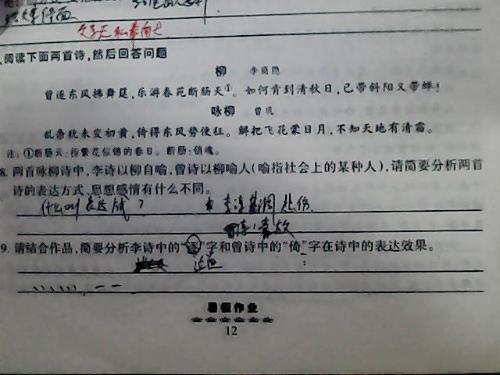 阅读下面两首诗,然后回答问题
柳 李商隐
曾逐东风拂舞筵,乐游春苑断肠天①。如何肯到清秋日,已带斜阳又带蝉!
咏柳 曾巩
乱条犹未变初黄,倚得东风势便狂。解把飞花蒙日月,不知天地有清霜。
注:①断肠天:指繁花似锦的春日。断肠:销魂。
8. 两首咏柳诗中,李诗以柳自喻,曾诗以柳喻人(喻指社会上的某种人),请简要分析两首
诗的表达方式、思想感情有什么不同。
什么叫表达式?
9. 请结合作品,简要分析李诗中的“逐”字和曾诗中的“倚”字在诗中的表达效果。
追逐
暑假作业
12